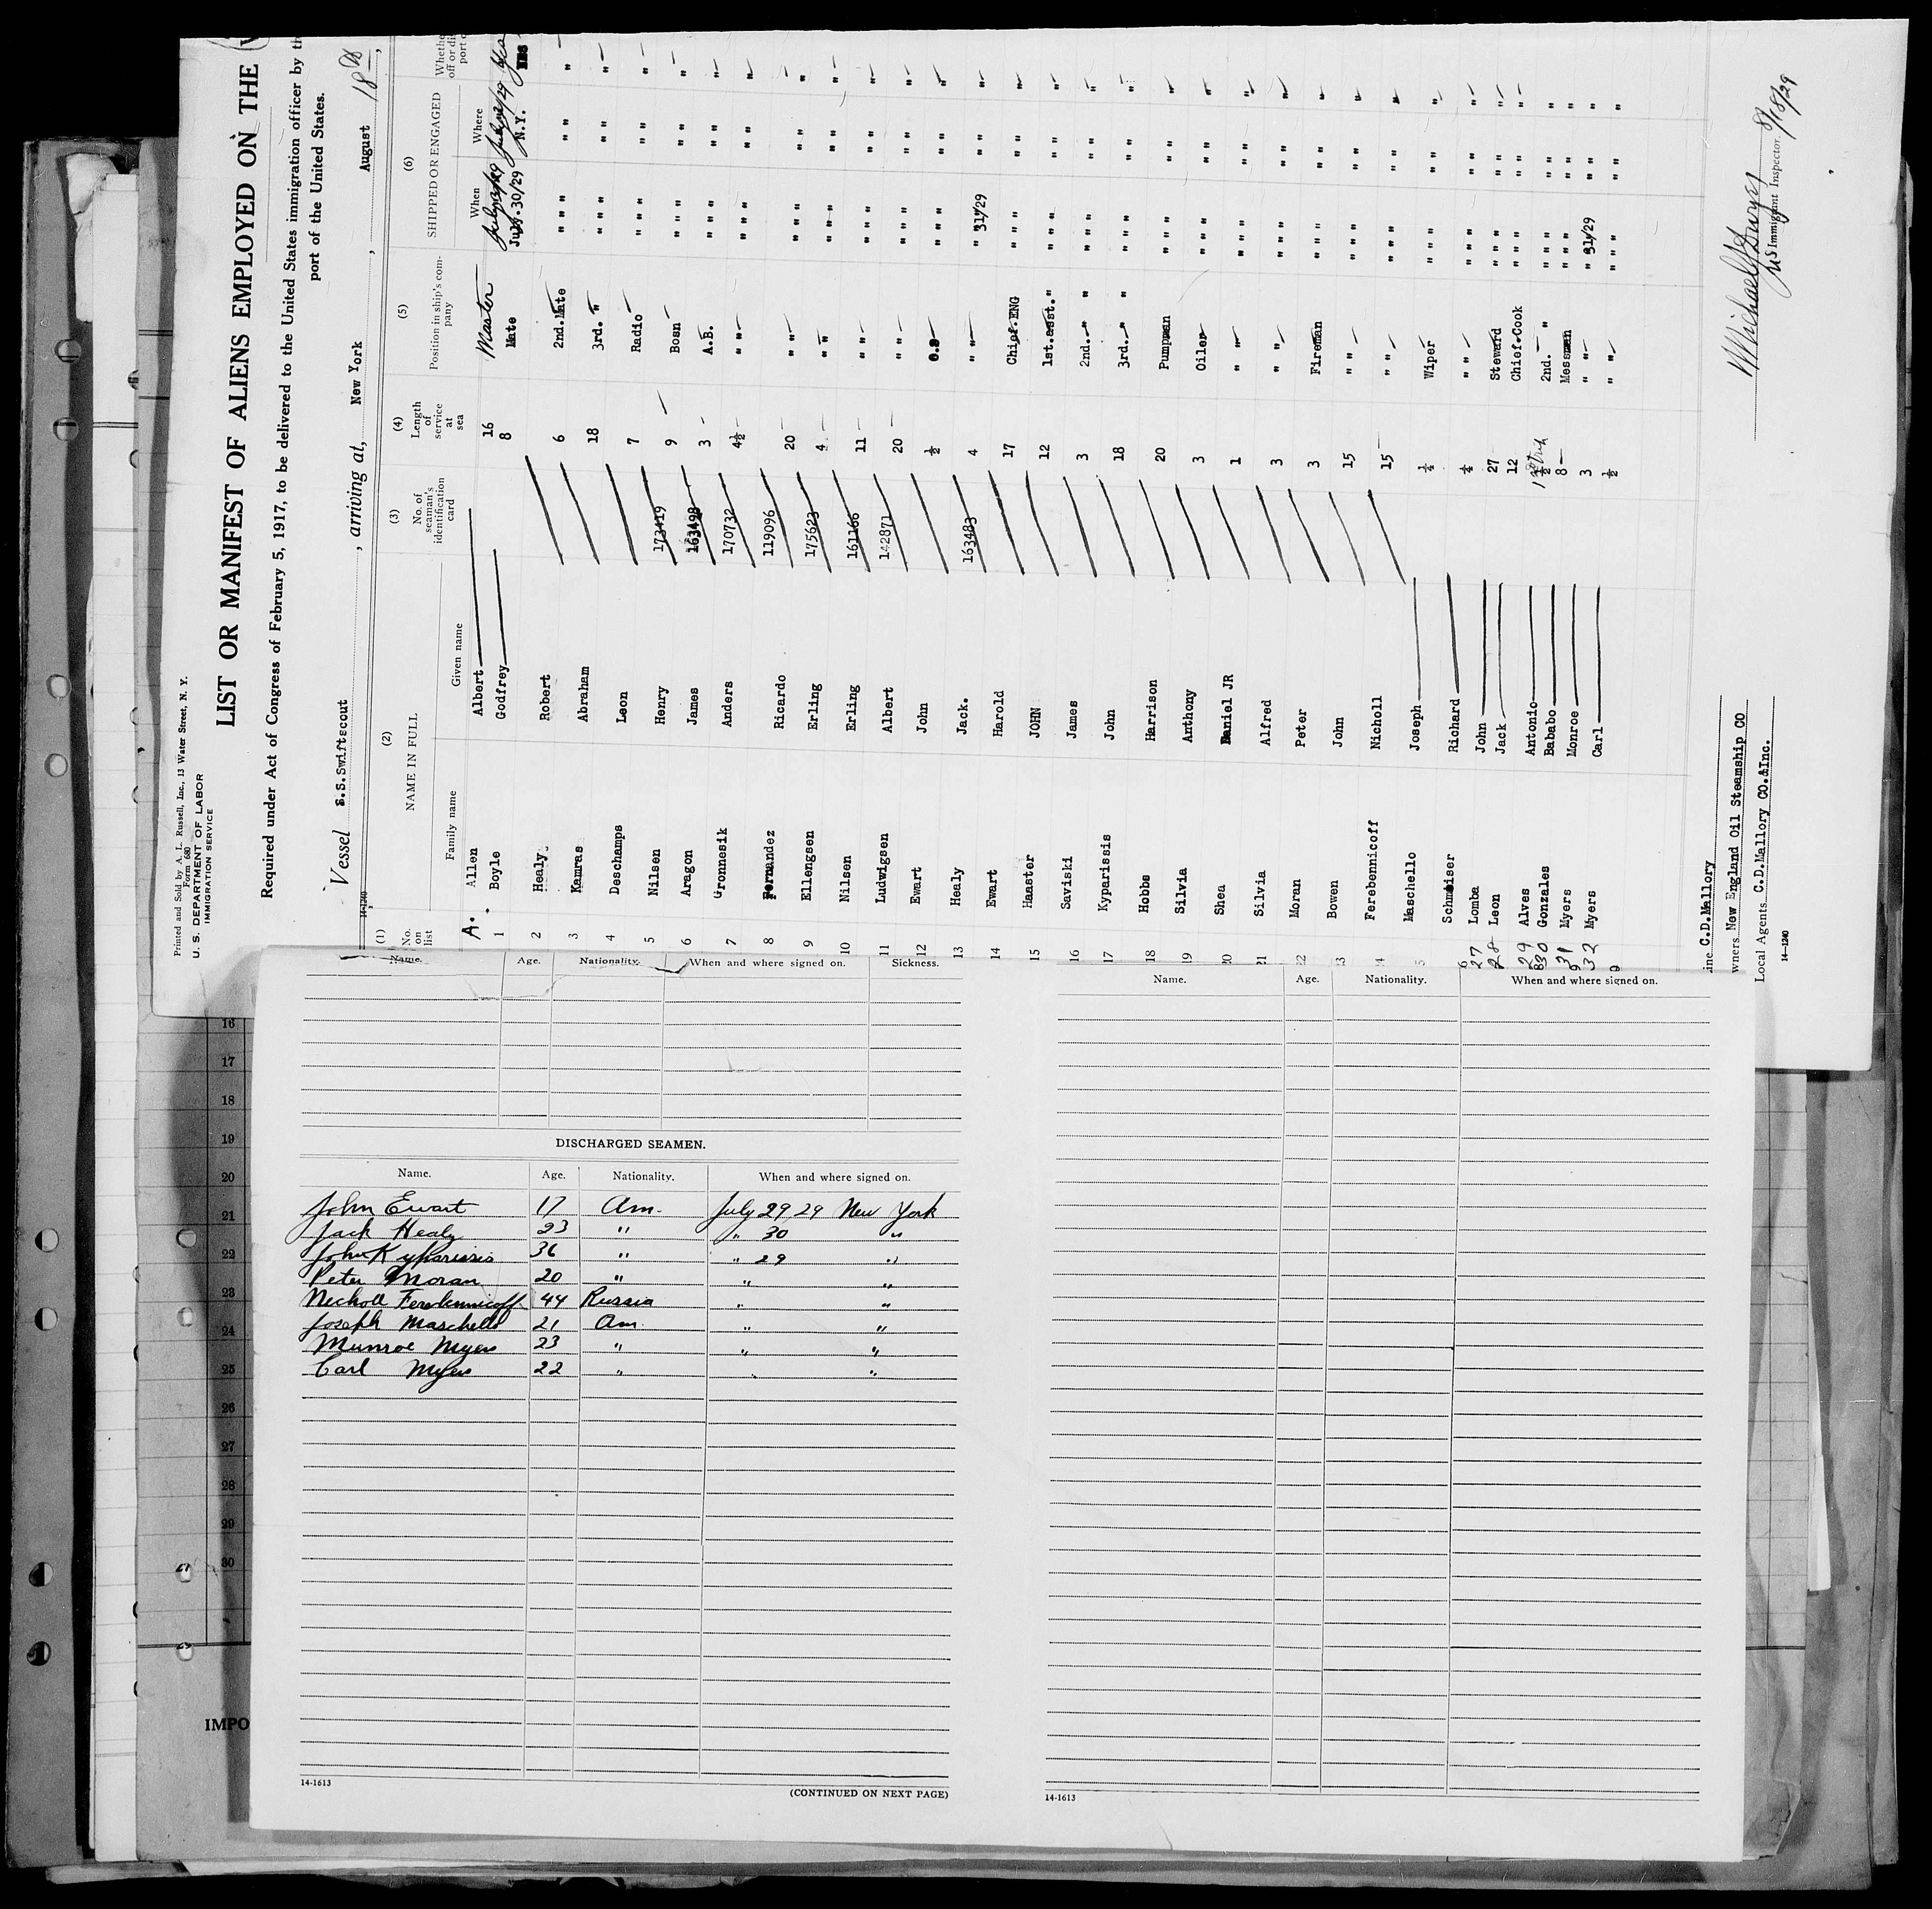 Printed and Sold by A. L. Russell, Inc., 13 Water Street, N. Y.
Form 680
U. S. DEPARTMENT OF LABOR
IMMIGRATION SERVICE
LIST OR MANIFEST OF ALIENS EMPLOYED ON THE
Required under Act of Congress of February 5, 1917, to be delivered to the United States immigration officer by th
port of the United States.
Vessel S.S.Swiftscout , arriving at, New York , August 18th ,
14-1240
(1) (2) (3) (4) (5) (6)
No. on list NAME IN FULL No. of seaman's identification card Length of service at sea Position in ship's company SHIPPED OR ENGAGED
Family name Given name When Where
A. Allen Albert 16 Master
1 Boyle Godfrey 8 Mate July.30/29 N.Y.
2 Healy. Robert 6 2nd.Mate " " " " " "
3 Kamras Abraham 18 3rd. " " " " " " "
4 Deschamps Leon 7 Radio " " " " " "
5 Nilsen Henry 173419 9 Bosn " " " " " "
6 Aragon James 163498 3 A.B. " " " " " "
7 Gronnesik Anders 170732 4½ " " " " " " " "
8 Fernandez Ricardo 119096 20 " " " " " " " "
9 Ellengsen Erling 175623 4 " " " " " " " "
10 Nilsen Erling 161166 11 " " " " " " " "
11 Ludwigsen Albert 142871 20 " " " " " " " "
12 Ewart John ½ O.S " " " " " "
13 Healy Jack. 163483 4 " " " 31/29 " " "
14 Ewart Harold 17 Chief.ENG " " " " " "
15 Haaster JOHN 12 1st.asst." " " " " " "
16 Saviski James 3 2nd. " " " " " " " "
17 Kyparissis John 18 3rd. " " " " " " " "
18 Hobbs Harrison 20 Pumpman " " " " " "
19 Silvia Anthony 3 Oiler " " " " " "
20 Shea Daniel JR 1 " " " " " " " "
21 Silvia Alfred 3 " " " " " " " "
22 Moran Peter 3 Fireman " " " " " "
23 Bowen John 15 " " " " " " " "
24 Ferebennicoff Nicholl 15 " " " " " " " "
5 Maschello Joseph ¼ Wiper " " " " " "
6 Schmeiser Richard ¼ " " " " " " " "
27 Lomba John 27 Steward " " " " " "
28 Leon Jack 12 Chief.Cook " " " " " "
29 Alves Antonio 2nd. " " " " " " "
30 Gonzales Bababo 8 Messman " " " " " "
31 Myers Monroe 3 " " " 31/29 " " "
32 Myers Carl ½ " " " " " " " "
ine C.D.Mallory
wners New England Oil Steamship CO
Local Agents. C.D.Mallory CO.&Inc.
14-1240
US Immigrant Inspector. 8/18/29
Name. Age. Nationality. When and where signed on. Sickness.
DISCHARGED SEAMEN.
Name. Age. Nationality. When and where signed on.
John Ewart 17 Am. July 29, 29 New York
Jack Healy 23 " " 30 "
John Kyparissis 36 " " 29 "
Peter Moran 20 " " "
Necholl Ferebennicoff 44 Russia " "
Joseph Maschello 21 Am. " "
Munroe Myers 23 " " "
Carl Myers 22 " " "
14-1613
(CONTINUED ON NEXT PAGE)
Name. Age. Nationality. When and where signed on.
14-1613
16
17
18
19
20
21
22
23
24
25
26
27
28
29
30
IMPO